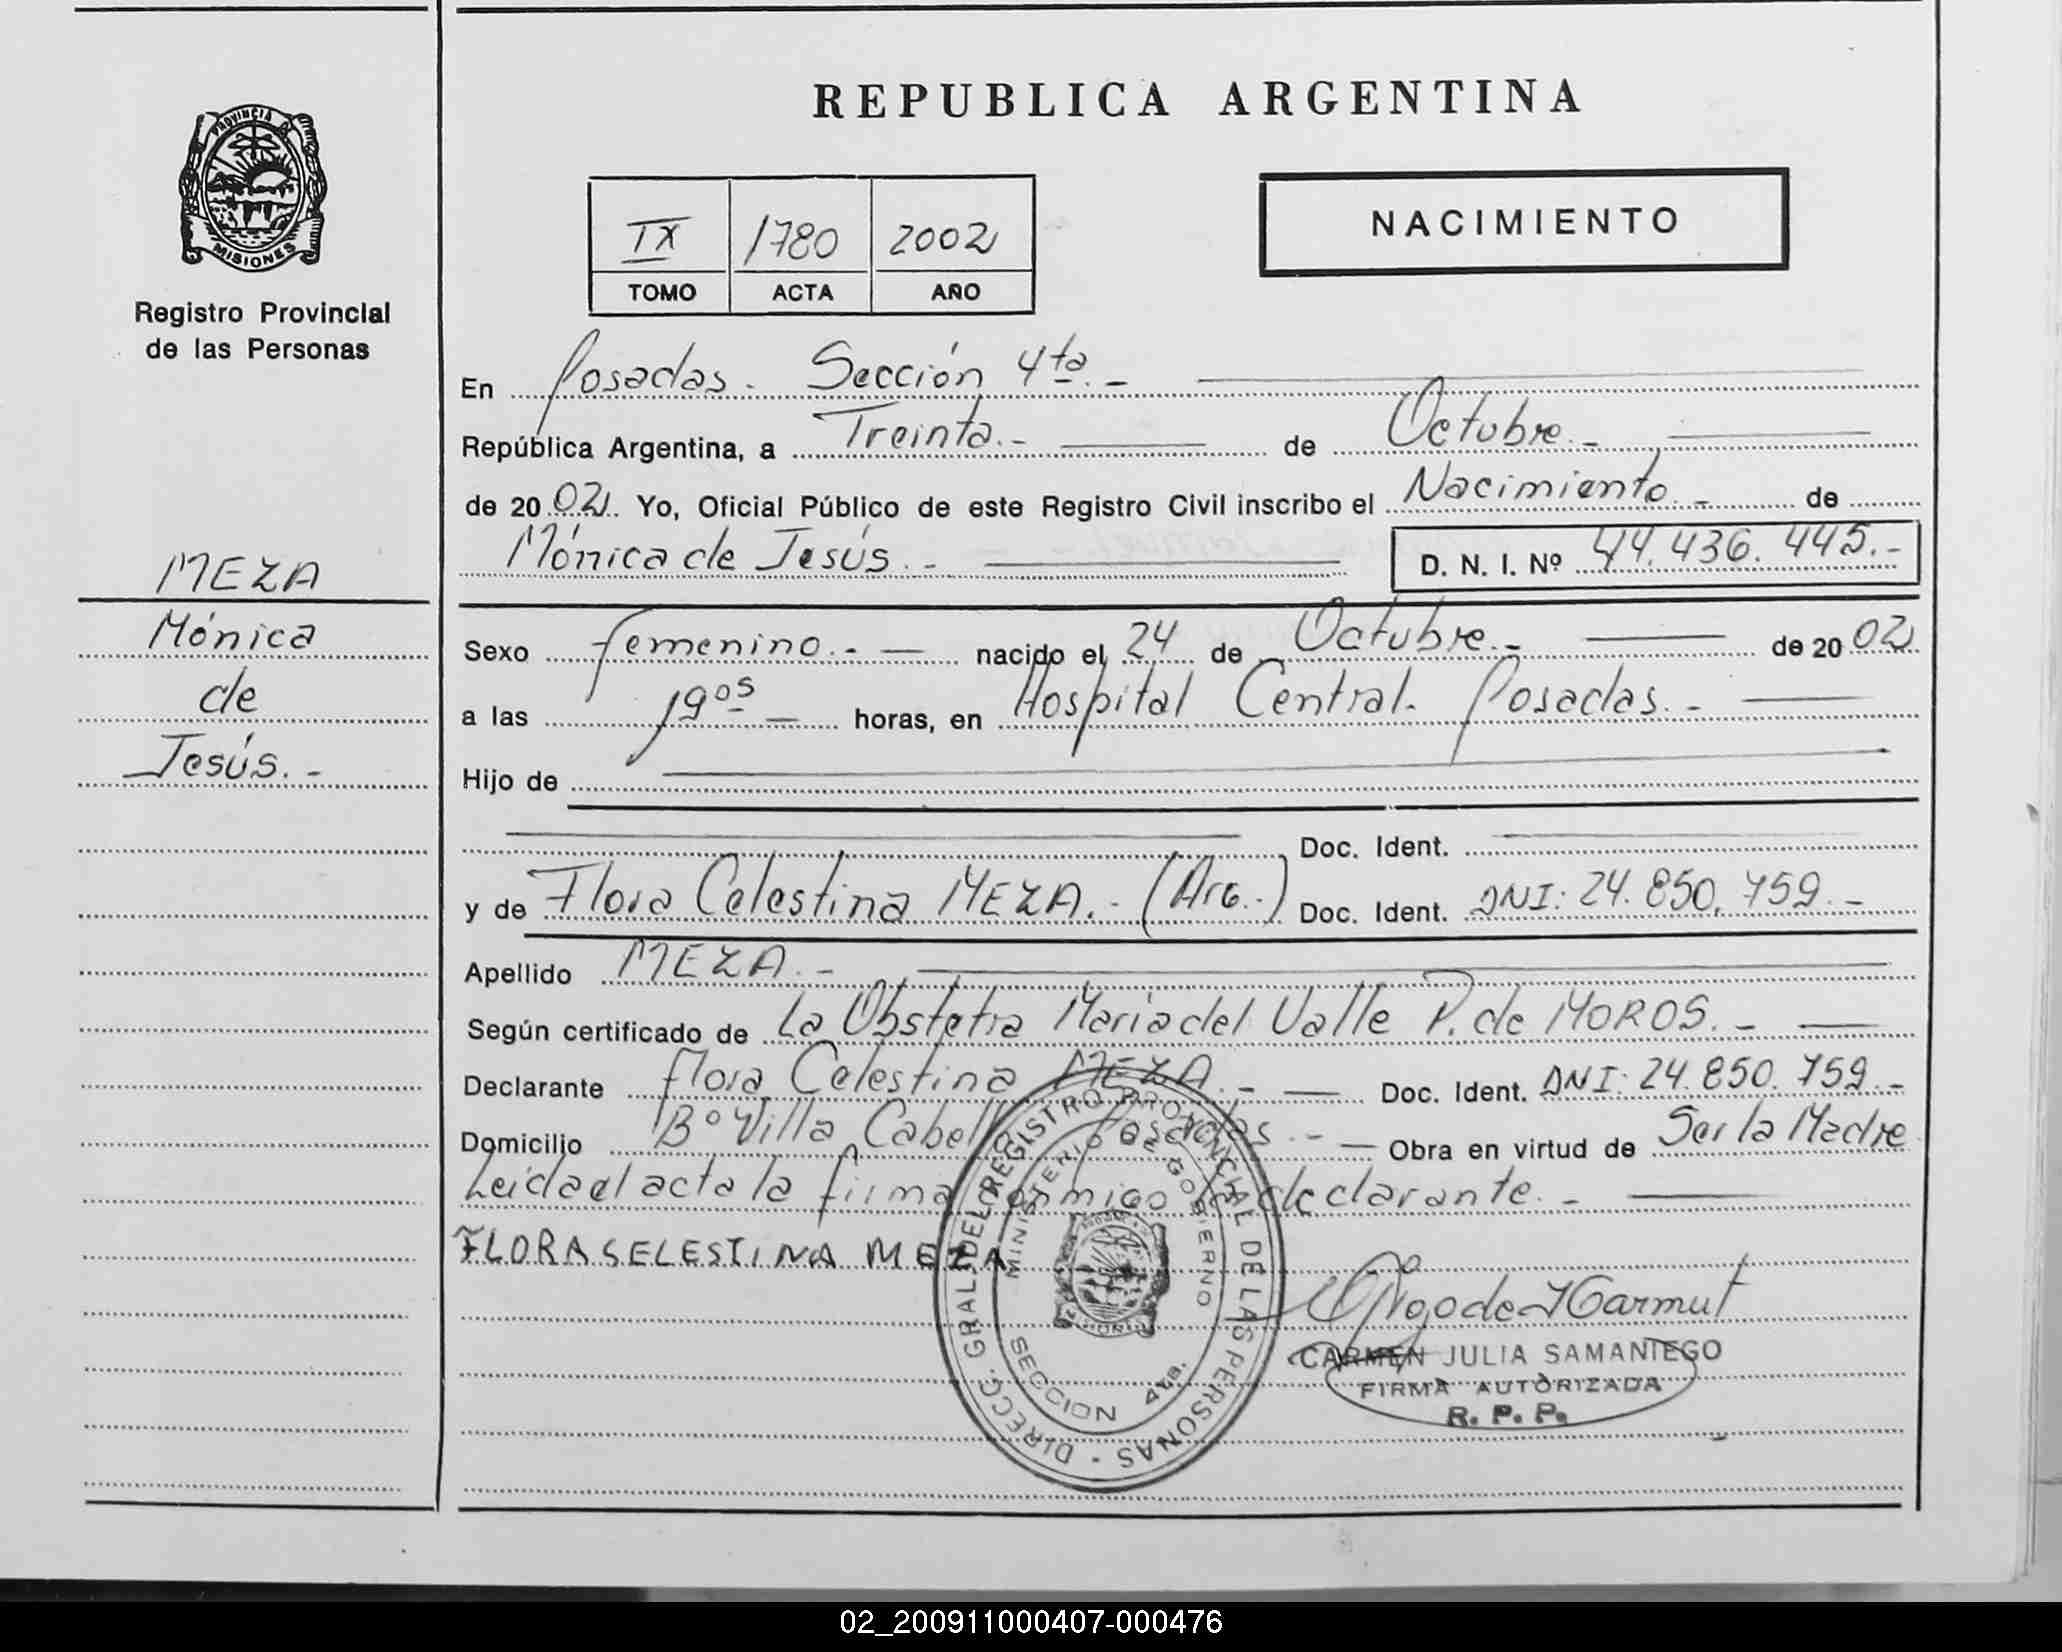 REPUBLICA ARGENTINA
PROVINCIA DE
MISIONES
Registro Provincial
de las Personas
IX 1780 2002
TOMO ACTA AÑO
NACIMIENTO
MEZA
Mónica
de
Jesús.-
En Posadas. Sección 4ta.-
República Argentina, a Treinta.- de Octubre.-
de 2002. Yo, Oficial Público de este Registro Civil inscribo el Nacimiento.- de
Mónica de Jesús.- D. N. I. Nº 44.436.445.-
Sexo femenino.- nacido el 24 de Octubre.- de 2002
a las 19 05 horas, en Hospital Central. Posadas.-
Hijo de
Doc. Ident.
y de Flora Celestina MEZA.- (Arg.-) Doc. Ident. DNI: 24.850.759.-
Apellido MEZA.-
Según certificado de La Obstetra María del Valle P. de MOROS.-
Declarante Flora Celestina MEZA.- Doc. Ident. DNI: 24.850.759.-
Domicilio Bº Villa Cabello Posadas.- Obra en virtud de Ser la Madre
Leída el acta la firma conmigo la declarante.-
FLORA SELESTINA MEZA
DIRECC. GRAL. DEL REGISTRO PROVINCIAL DE LAS PERSONAS
MINISTERIO DE GOBIERNO
SECCION 4ta.
CARMEN JULIA SAMANIEGO
FIRMA AUTORIZADA
R. P. P.
02_200911000407-000476